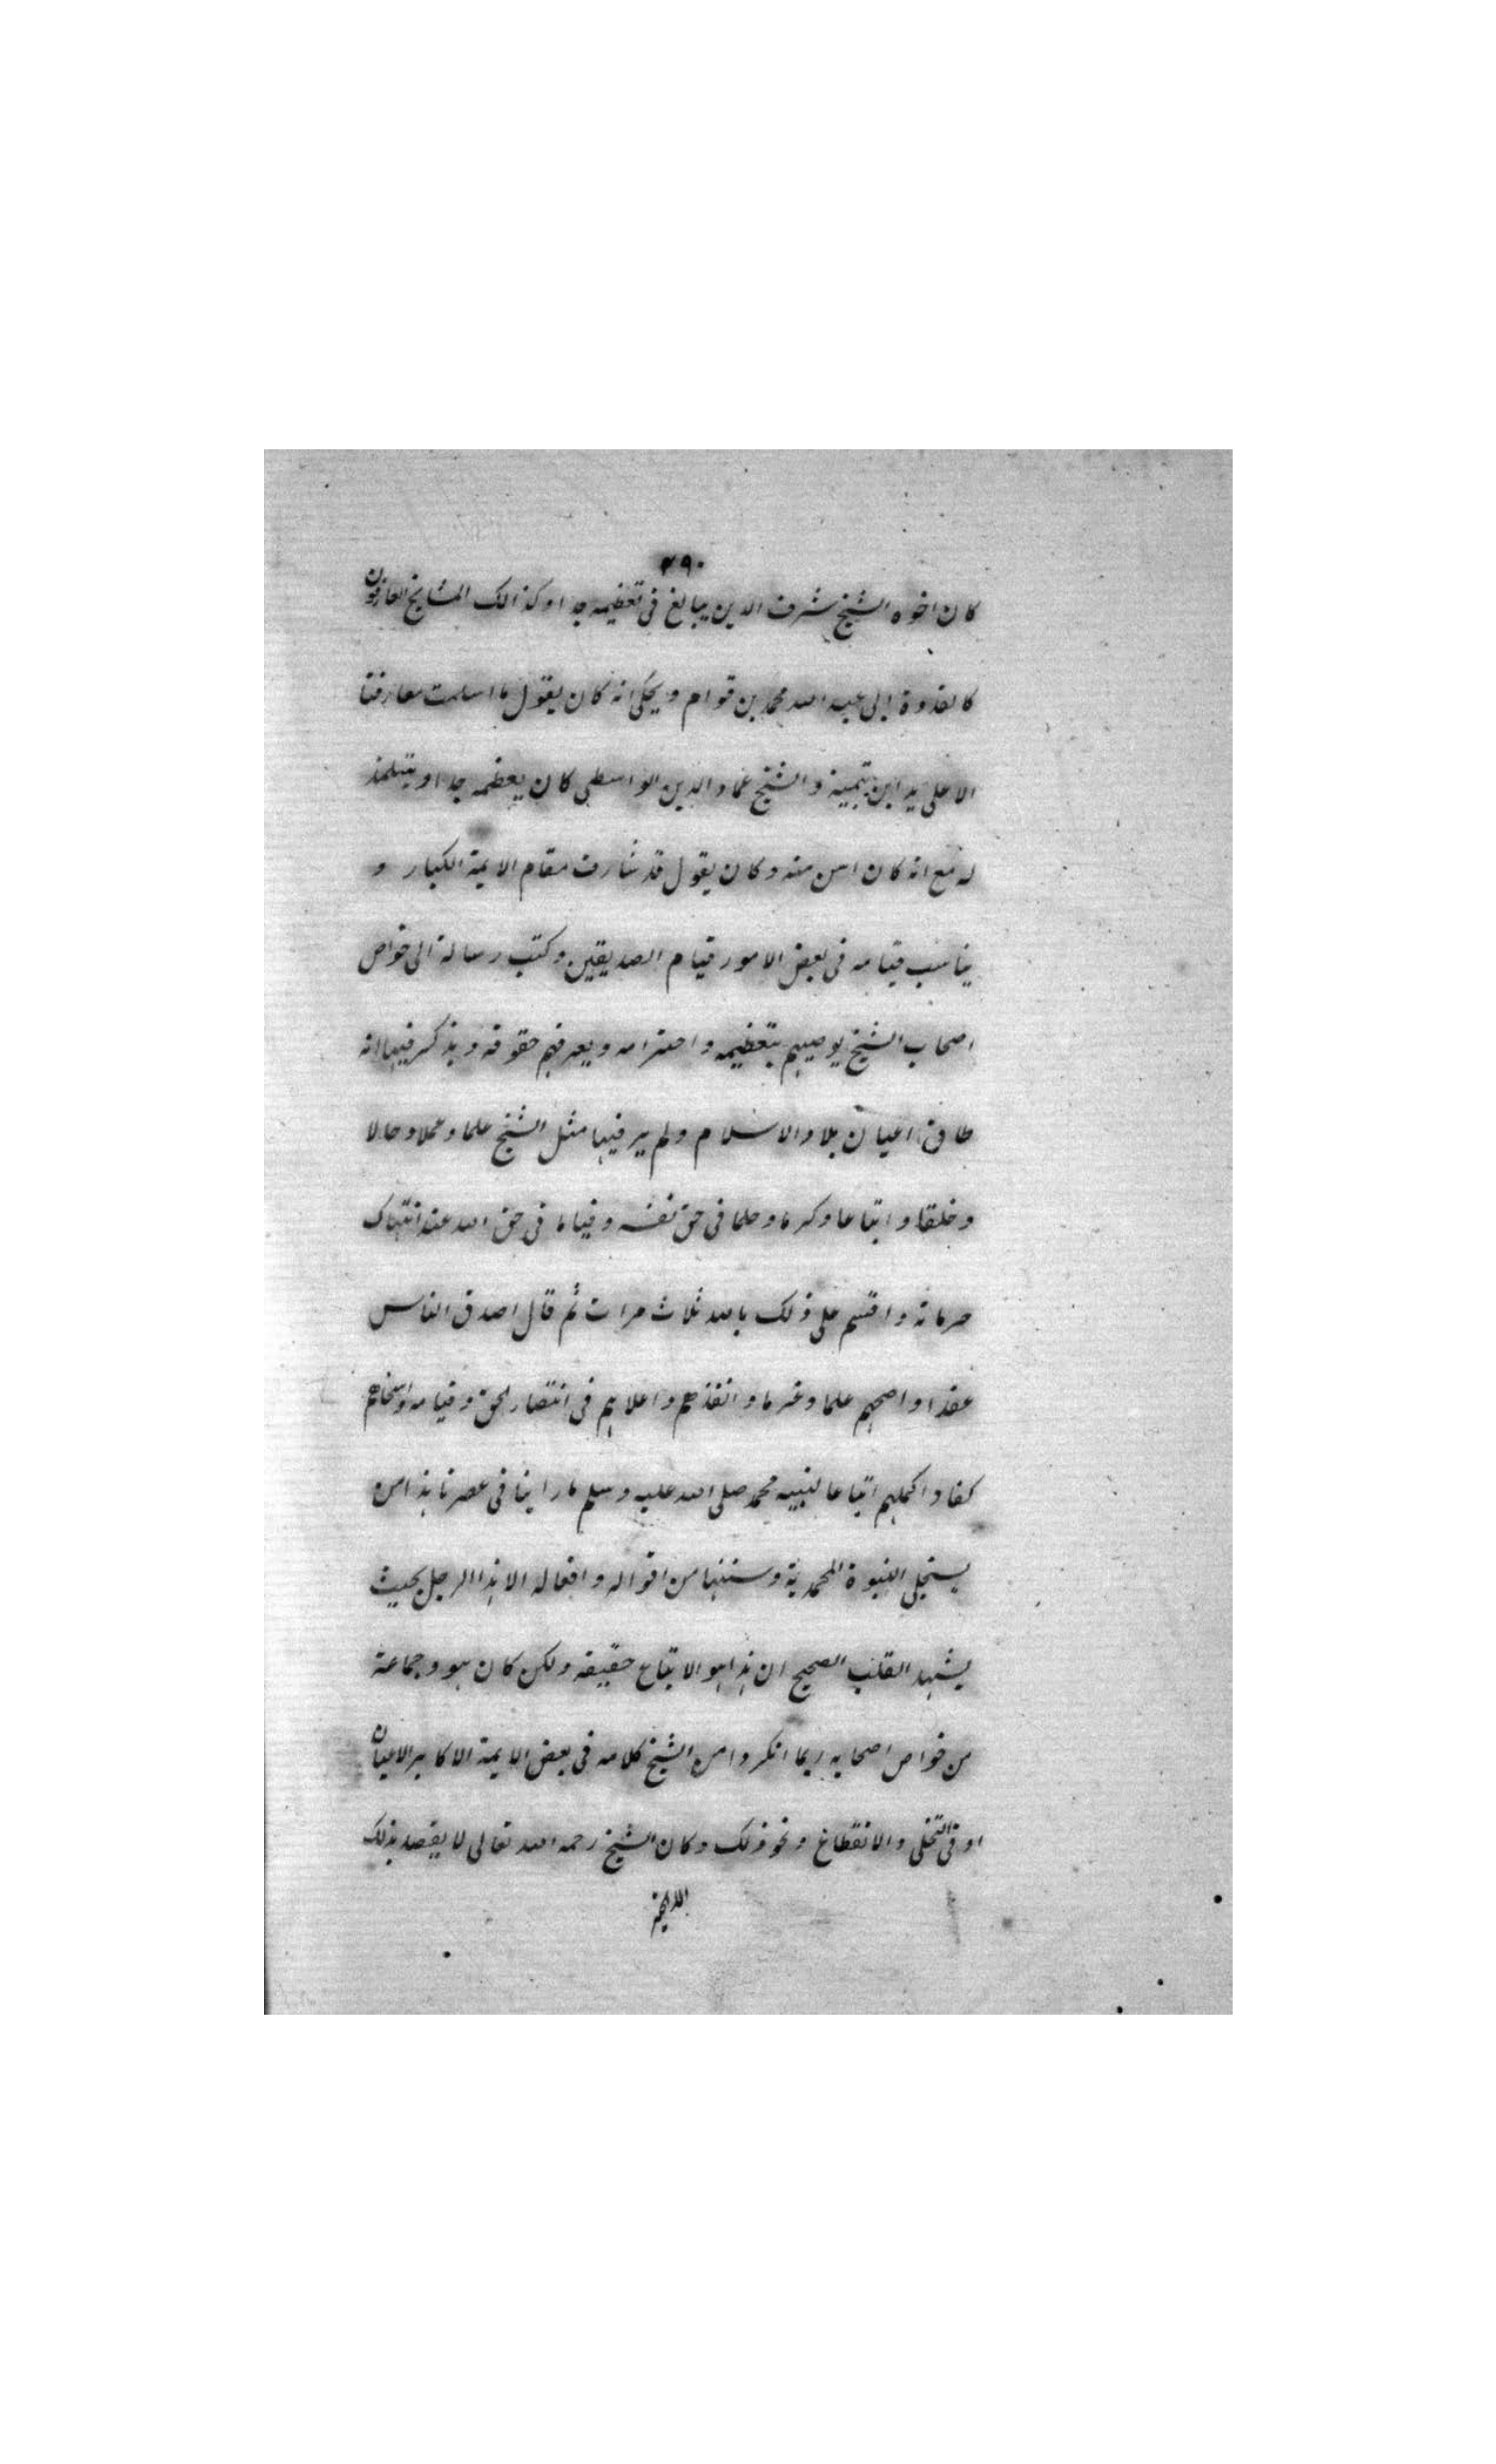 ٢٩٠
كان اخوه الشيخ شرف الدين يبالغ فى تعظيمه جدا وكذالك المشايخ العارفون
كالقدوة ابى عبد الله محمد بن قوام ويحكى انه كان يقول ما اسلمت معارفنا
الا على يد ابن تيمية والشيخ عماد الدين الواسطى كان يعظمه جدا ويتتلمذ
له مع انه كان اسن منه وكان يقول قد شارف مقام الايمة الكبار و
يناسب قيامه فى بعض الامور قيام الصديقين وكتب رسالة الى خواص
اصحاب الشيخ يوصيهم بتعظيمه واحترامه ويعرفهم حقوقه ويذكر فيها انه
طاف اعيان بلاد الاسلام ولم ير فيها مثل الشيخ علما وعملا وحالا
وخلقا واتباعا وكرما وحلما فى حق نفسه وقياما فى حق الله عند انتهاك
حرماته واقسم على ذلك بالله ثلاث مرات ثم قال اصدق الناس
عقدا واصحهم علما وعزما وانفذهم واعلاهم فى انتصار الحق وقيامه واسخاهم
كفا واكملهم اتباعا لنبيه محمد صلى الله عليه وسلم ما راينا فى عصرنا هذا من
يستجلى النبوة المحمدية وسننها من اقواله وافعاله الا هذا الرجل بحيث
يشهد القلب الصحيح ان هذا هو الاتباع حقيقه ولكن كان هو وجماعة
من خواص اصحابه ربما انكروا من الشيخ كلامه فى بعض الايمة الاكابر الاعيان
او فى التخلى والانقطاع ونحو ذلك وكان الشيخ رحمه الله تعالى لا يقصد بذلك